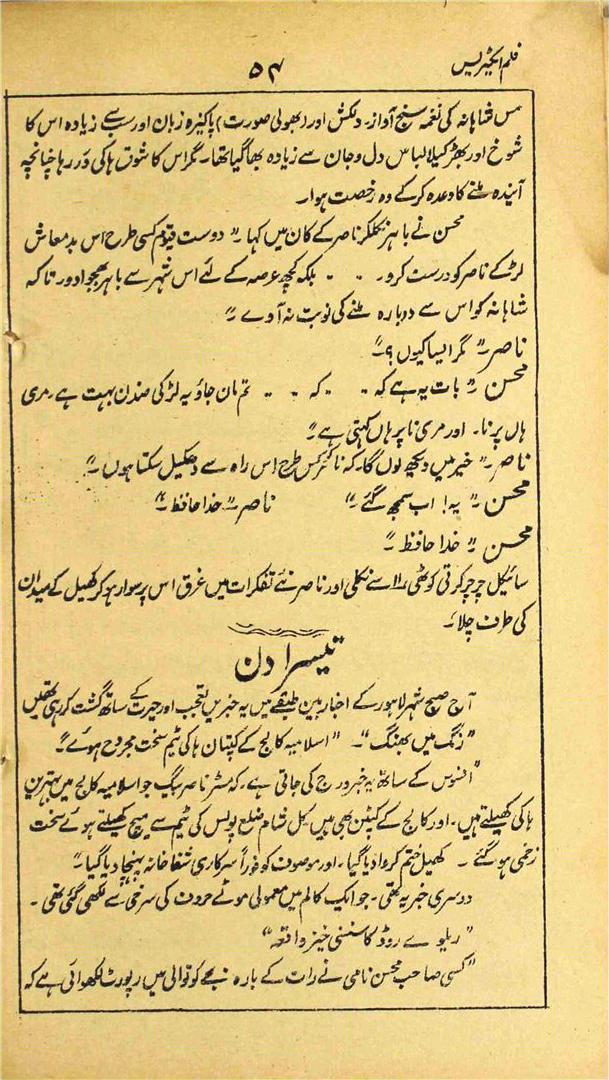 فلم ایکٹریس
۵۴
مس شاہانہ کی نغمہ سنج آواز۔ دلکش اور (بھولی صورت) پاکیزہ زبان اور سب سے زیادہ اس کا
شوخ اور بھڑکیلا لباس دل و جان سے زیادہ بھا گیا تھا۔ مگر اس کا شوق ہاکی ور رہا چنانچہ
آیندہ ملنے کا وعدہ کر کے وہ رخصت ہوا۔
محسن نے باہر نکلکر ناصر کے کان میں کہا۔ " دوست تو تم کسی طرح اس بدمعاش
لڑکے ناصر کو درست کرو۔ - - بلکہ کچھ عرصہ کے لئے اس شہر سے باہر بھجوا دو۔ تا کہ
شاہانہ کو اس سے دوبارہ ملنے کی نوبت نہ آوے۔"
ناصر۔" مگر ایسا کیوں ؟۔"
محسن ۔" بات یہ ہے کہ - - - کہ - - - تم مان جاؤ یہ لڑکی ضدن بہت ہے۔ مری
ہاں پر نا۔ اور مری نا پر ہاں کہتی ہے۔"
ناصر۔" خیر میں دیکھ لوں گا۔ کہ ناصر کس طرح اس راہ سے دھکیل سکتا ہوں۔"
محسن ۔" یہ! اب سمجھ گئے ۔" ناصر۔" خدا حافظ۔"
محسن ۔" خدا حافظ ۔"
سائیکل چرچر کرتی کوٹھی ۱۱ سے نکلی اور ناصر نئے تفکرات میں غرق اس پر سوار ہو کر کھیل کے میدان
کی طرف چلا۔
تیسرا دن
آج صبح شہر لاہور کے اخبار بین طبقے میں یہ خبریں تعجب اور حیرت کے ساتھ گشت کر رہی تھیں
"رنگ میں بھنگ"۔ "اسلامیہ کالج کے کپتان ہاکی ٹیم سخت مجروح ہوئے۔"
"افسوس کے ساتھ یہ خبر درج کی جاتی ہے۔ کہ مسٹر ناصر بیگ جو اسلامیہ کالج میں بہترین
ہاکی کھیلتے ہیں۔ اور کالج کے کیپٹن بھی ہیں۔ کل شام ضلع پولس کی ٹیم سے میچ کھیلتے ہوئے سخت
زخمی ہو گئے ۔ کھیل ختم کروا دیا گیا۔ اور موصوف کو فوراً سرکاری شفاخانہ پہنچا دیا گیا۔"
دوسری خبر یہ تھی۔ جو ایک کالم میں معمولی موٹے حروف کی سرخی سے لکھی گئی تھی۔
"ریلوے روڈ کا سنسنی خیز واقعہ"
"کسی صاحب محسن نامی نے رات کے بارہ بجے کوتوالی میں رپورٹ لکھوائی ہے کہ